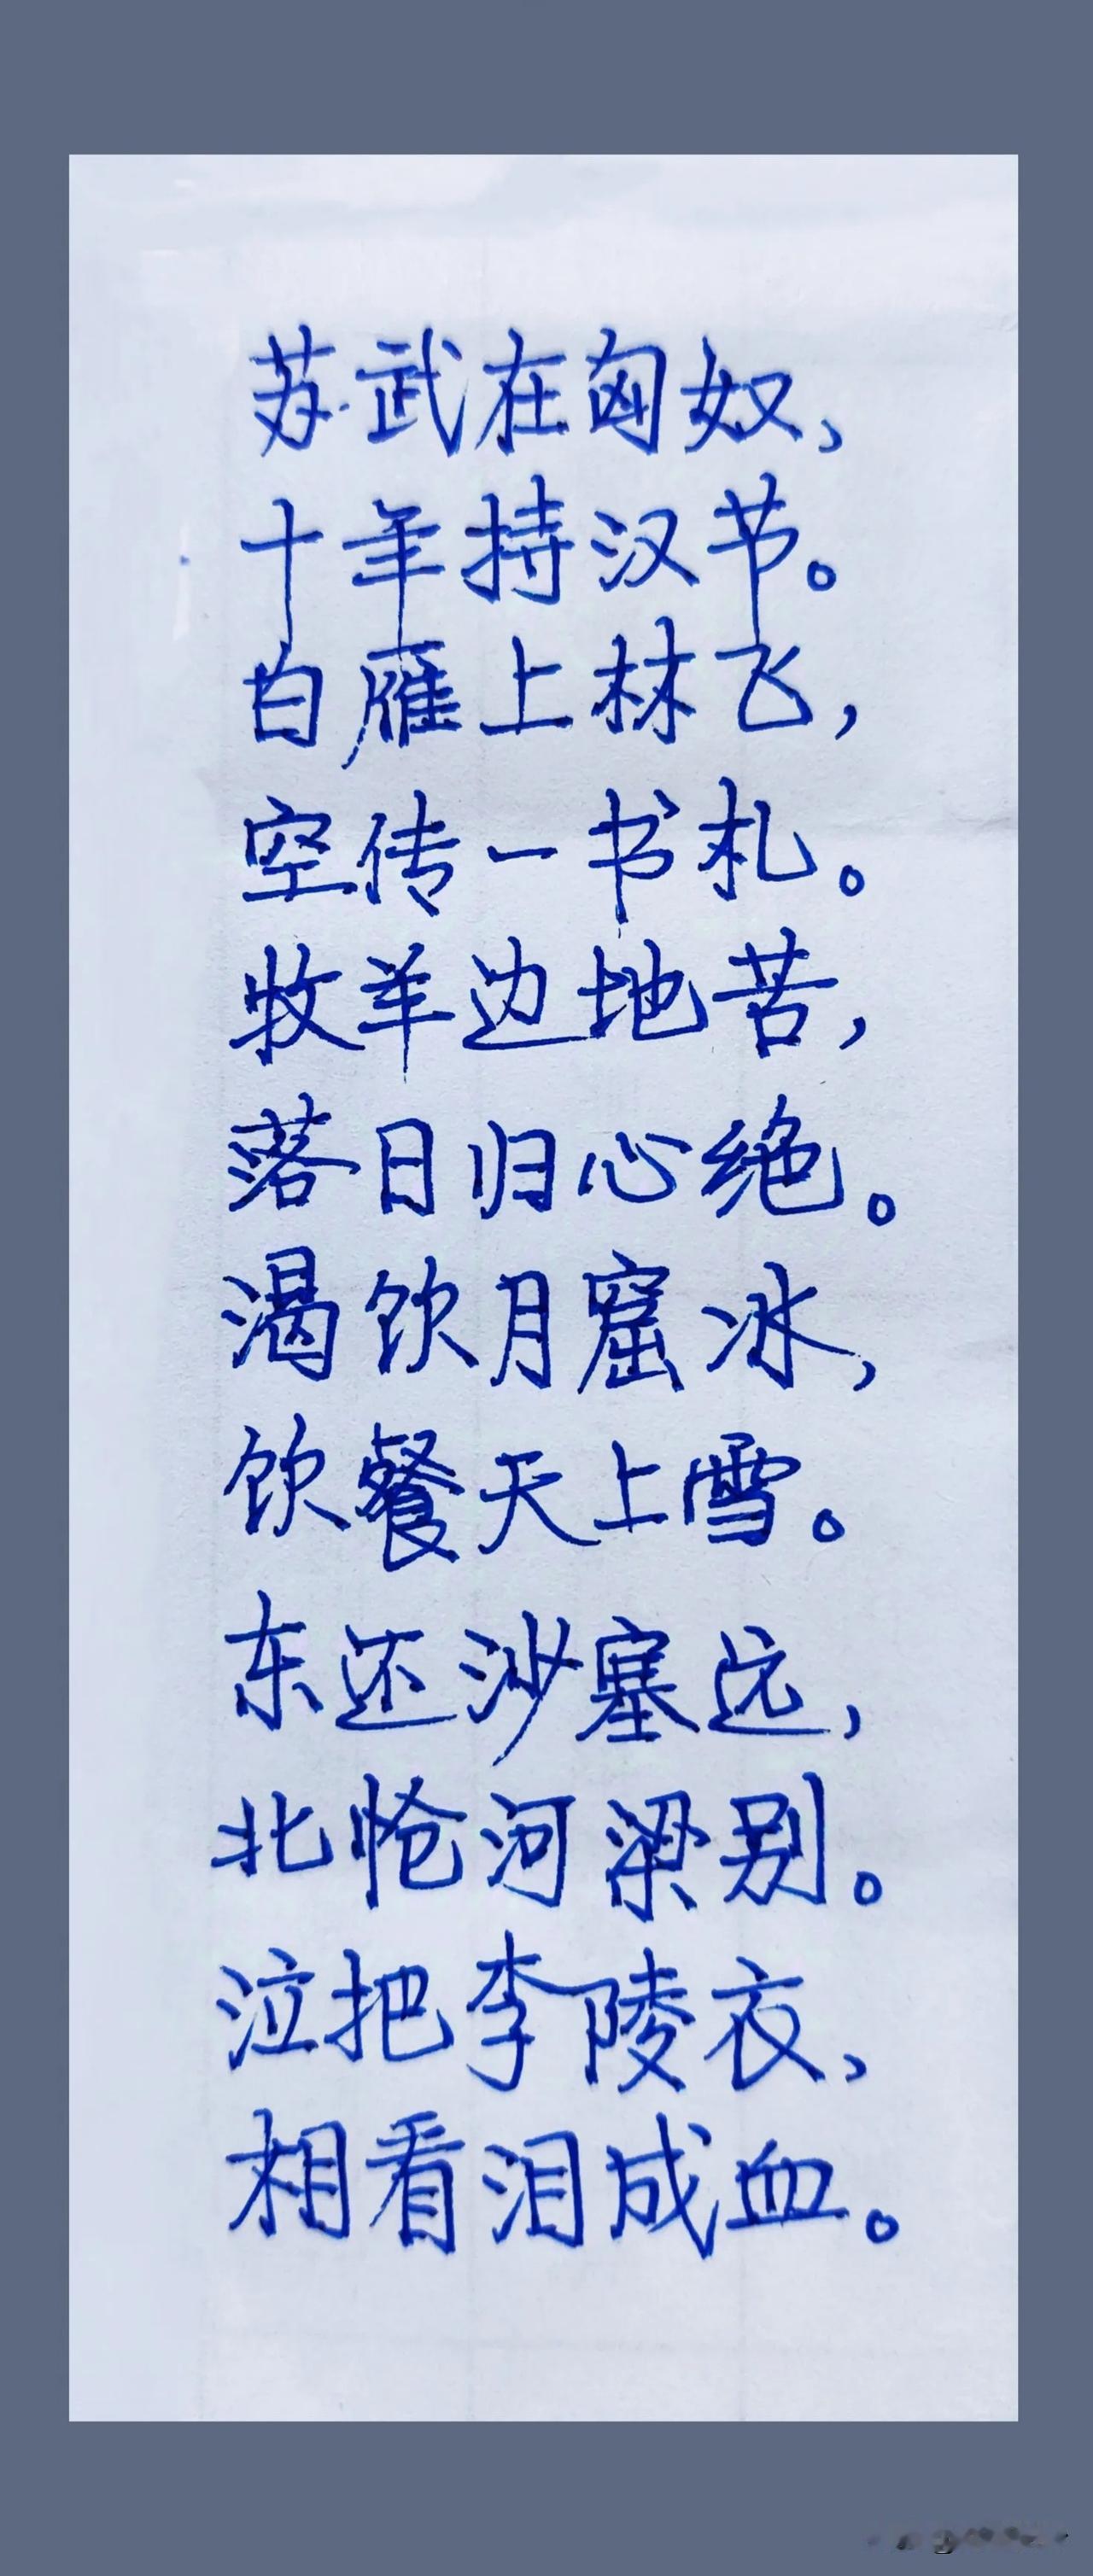 苏武在匈奴，
十年持汉节。
白雁上林飞，
空传一书札。
牧羊边地苦，
落日归心绝。
渴饮月窟冰，
饮餐天上雪。
东还沙塞远，
北怆河梁别。
泣把李陵衣，
相看泪成血。